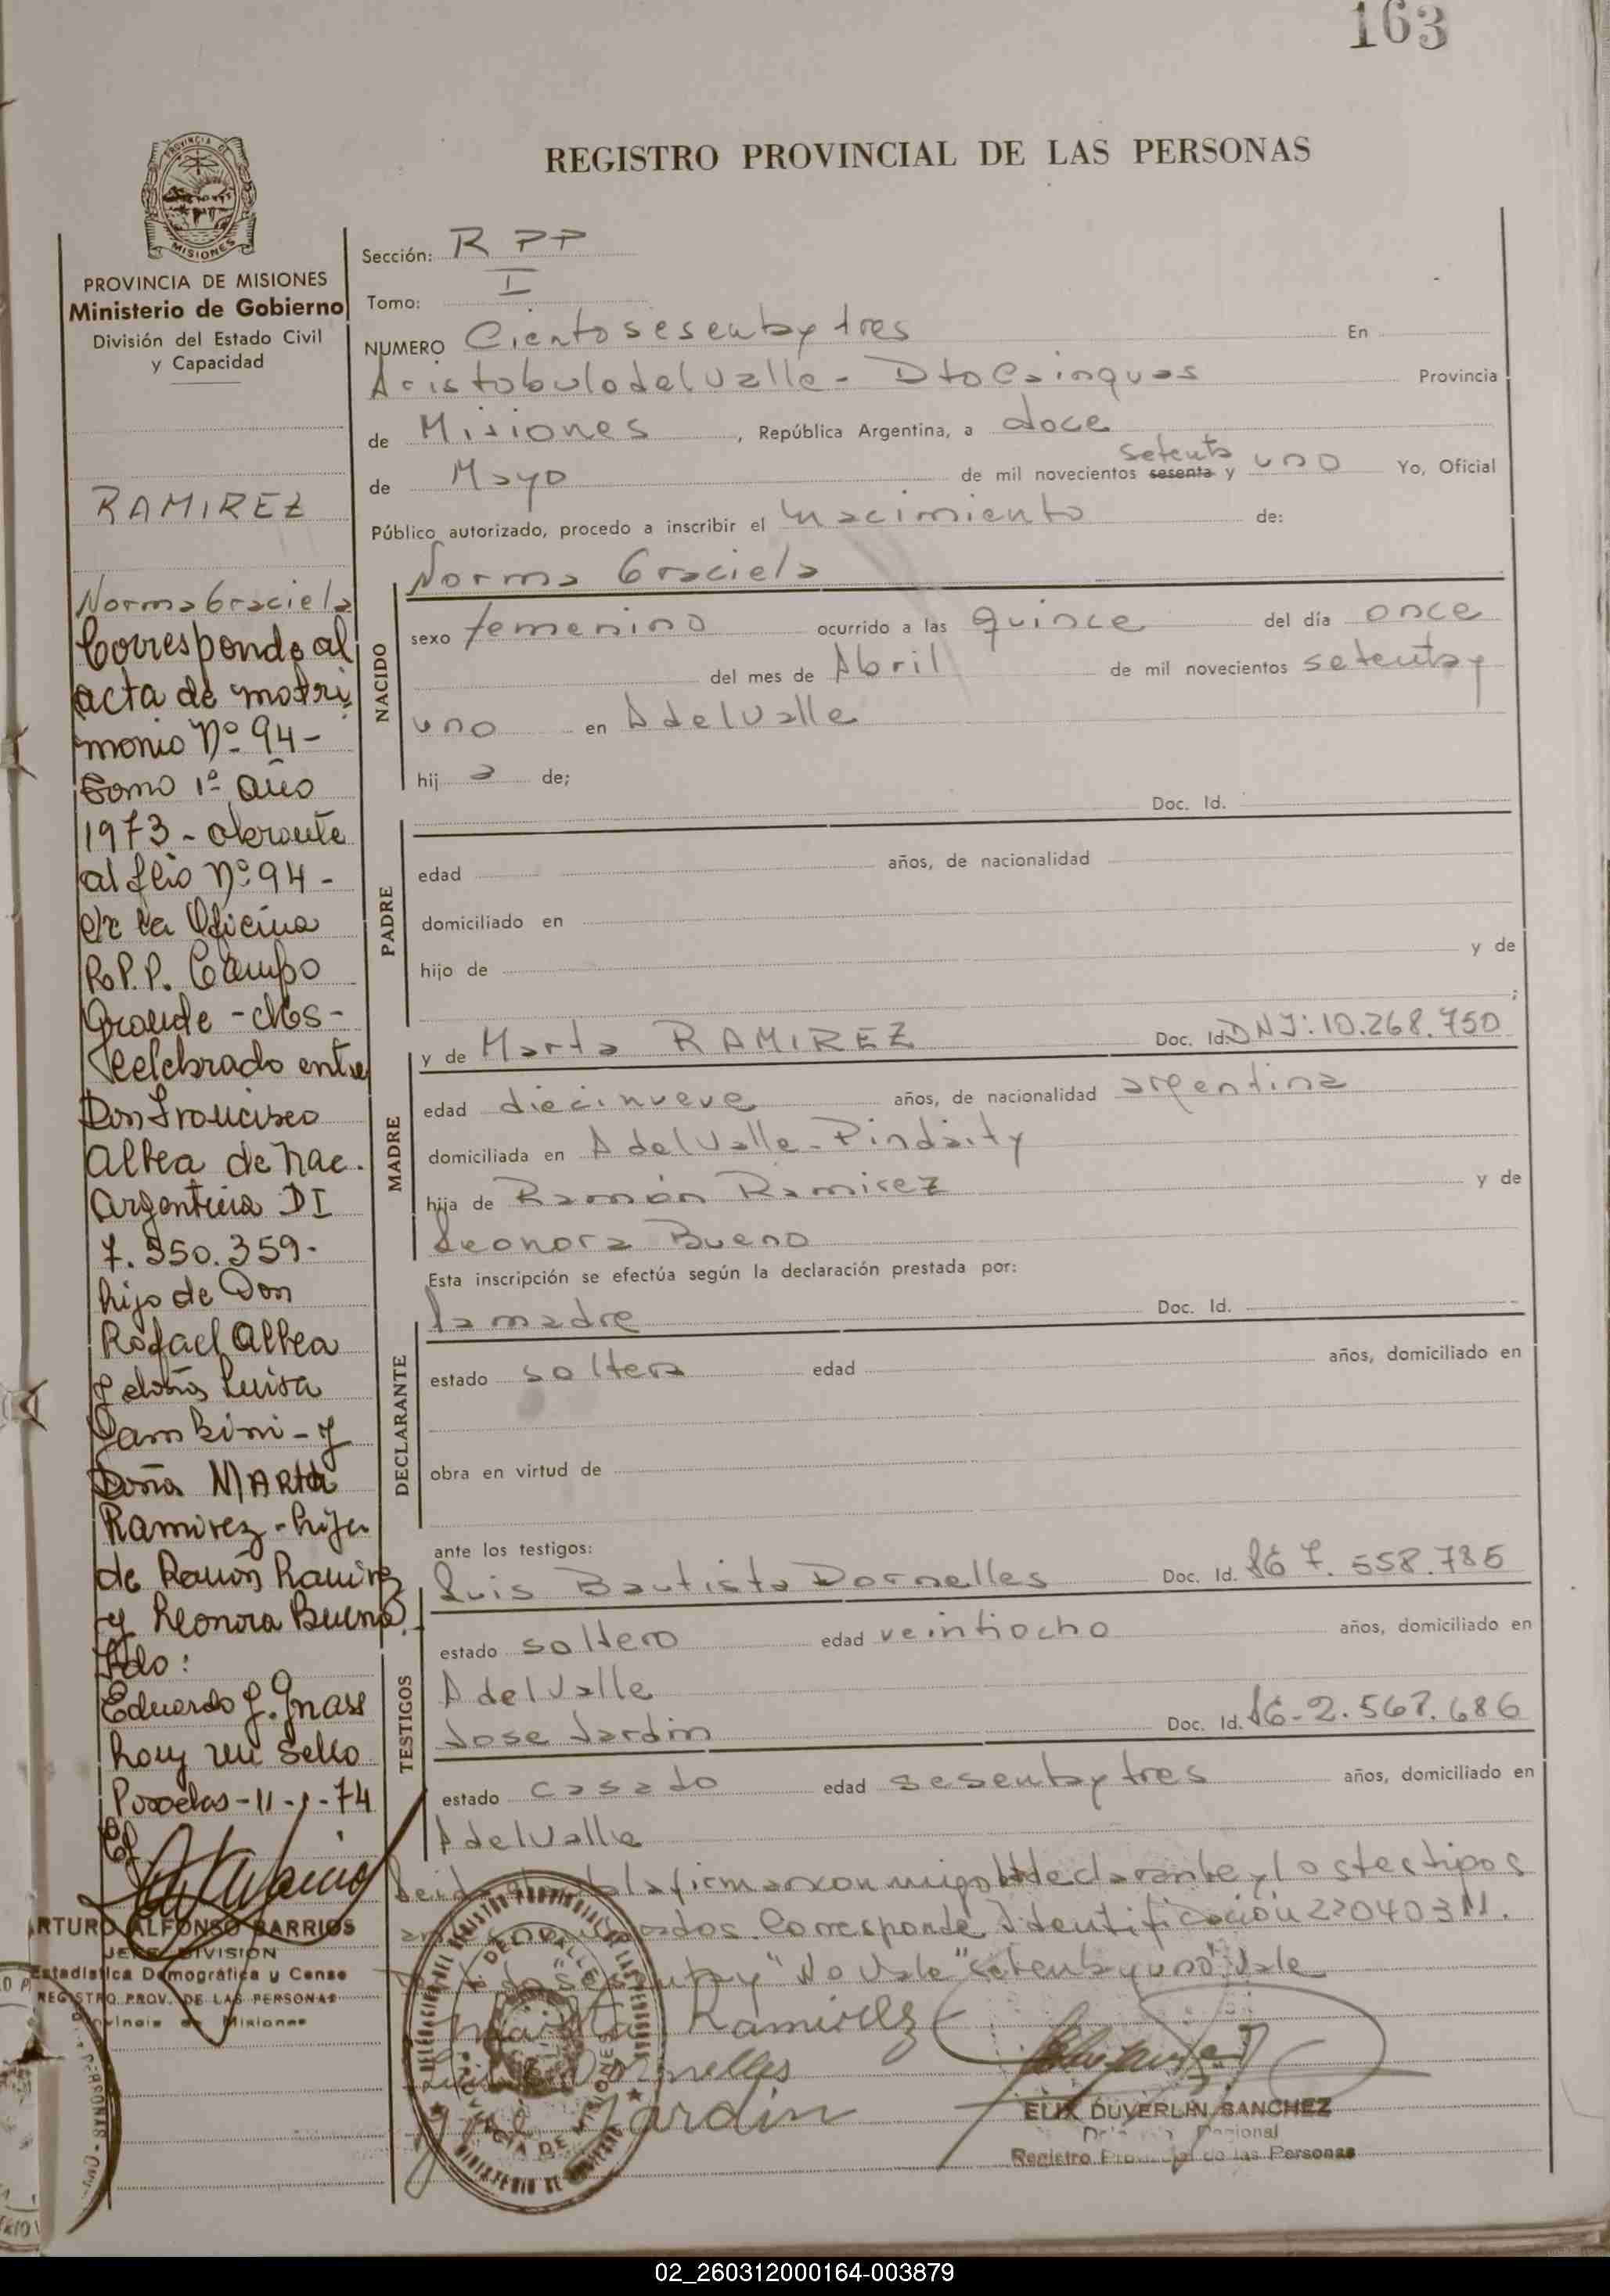 163
REGISTRO PROVINCIAL DE LAS PERSONAS
PROVINCIA DE
MISIONES
PROVINCIA DE MISIONES
Ministerio de Gobierno
División del Estado Civil
y Capacidad
RAMIREZ
Norma Graciela
Corresponde al
acta de matri
monio Nº 94-
Tomo 1º año
1973 - obrante
al flio Nº 94-
de la Oficina
R.P.P. Campo
Grande - Mes-
Celebrado entre
Don Francisco
Altea de nac.
Argentina DI
7.550.359-
hijo de Don
Rafael Altea
y doña Luisa
y
Doña MARta
Ramirez - hija
de Ramón Ramirez
y Leonora Bueno.
Fdo:
Eduardo J.
hay un sello
Posadas - 11-1-74
ARTURO ALFONSO BARRIOS
JEFE DIVISION
Estadistica Demográfica y Censo
REGISTRO PROV. DE LAS PERSONAS
Provincia de Misiones
Sección: R PP
Tomo: I
NUMERO Ciento sesenta y tres En
Aristobulo del Valle - Dto Cainguas Provincia
de Misiones, República Argentina, a doce
setenta
de Mayo de mil novecientos sesenta y uno Yo, Oficial
Público autorizado, procedo a inscribir el nacimiento de:
NACIDO
Norma Graciela
sexo femenino ocurrido a las quince del día once
del mes de Abril de mil novecientos setenta y
uno en A del Valle
hij a de;
PADRE
Doc. Id.
edad años, de nacionalidad
domiciliado en
hijo de y de
;
MADRE
y de Marta RAMIREZ Doc. Id. DNI: 10.268.750
edad diecinueve años, de nacionalidad argentina
domiciliada en A del Valle - Pindaity
hija de Ramón Ramirez y de
Leonora Bueno
Esta inscripción se efectúa según la declaración prestada por:
DECLARANTE
la madre Doc. Id.
estado soltera edad años, domiciliado en
obra en virtud de
ante los testigos:
TESTIGOS
Luis Bautista Dornelles Doc. Id. 7.558.785
estado soltero edad veintiocho años, domiciliado en
A del Valle
Jose Jardin Doc. Id. 2.567.686
estado casado edad sesenta y tres años, domiciliado en
A del Valle
Leida el acta la firman conmigo la declarante y los testigos
Corresponde Identificación 22040311.
sesenta y "No Vale" "setenta y uno" Vale
Marta Ramirez
Luis Dornelles
José Jardin
DELEGACION DEL REGISTRO PROVINCIAL DE LAS PERSONAS
A. DEL VALLE
PROVINCIA DE MISIONES
MINISTERIO DE GOBIERNO
ELIX DUVERLIN SANCHEZ
Registro Provincial de las Personas
02_260312000164-003879